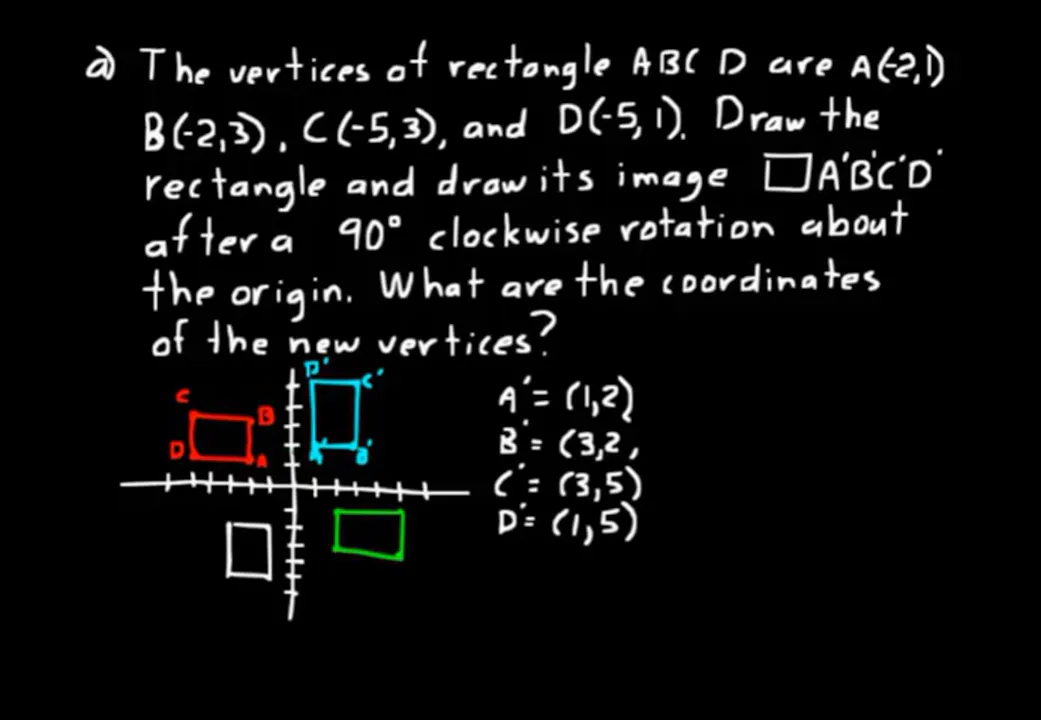 a) The vertices of rectangle ABCD are A(-2,1)
B(-2,3), C(-5,3), and D(-5,1). Draw the
rectangle and draw its image □A'B'C'D'
after a 90° clockwise rotation about
the origin. What are the coordinates
of the new vertices?
D'
C'
C
B
D
A
A'
B'
A' = (1,2)
B' = (3,2,
C' = (3,5)
D' = (1,5)